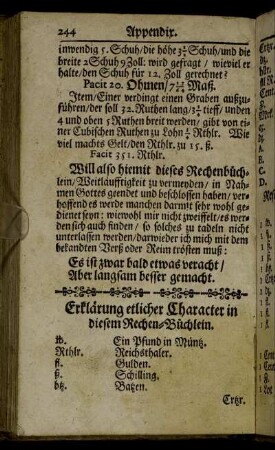 244 Appendix.
inwendig 5. Schuh/die höhe 3¾ Schuh/und die
breite 2 Schuh 9 Zoll: wird gefragt / wieviel er
halte/den Schuh für 12. Zoll gerechnet?
Facit 20. Ohmen/ Maß.
Item/Einer verdingt einen Graben außzu-
führen/der soll 32. Ruthen lang/ tieff/ unden
4 und oben 5 Ruthen breit werden/ gibt von ei-
ner Cubischen Ruthen zu Lohn Rthlr. Wie
viel machts Gelt/den Rthlr. zu 15. ß.
Facit 351. Rthlr.
Will also hiemit dieses Rechenbüch-
lein/Weitläuffigkeit zu vermeyden/ in Nah-
men Gottes geendet und beschlossen haben/ ver-
hoffend es werde manchen damit sehr wohl ge-
dienet seyn: wiewohl mir nicht zweiffelt/es wer-
den sich auch finden/ so solches zu tadeln nicht
unterlassen werden/darwieder ich mich mit dem
bekandten Verß oder Reim trösten muß:
Es ist zwar bald etwas veracht/
Aber langsam besser gemacht.
Erklärung etlicher Character in
diesem Rechen-Büchlein.
℔. Ein Pfund in Müntz.
Rthlr. Reichsthaler.
fl. Gulden.
ß. Schilling.
btz. Batzen.
Crtzr.